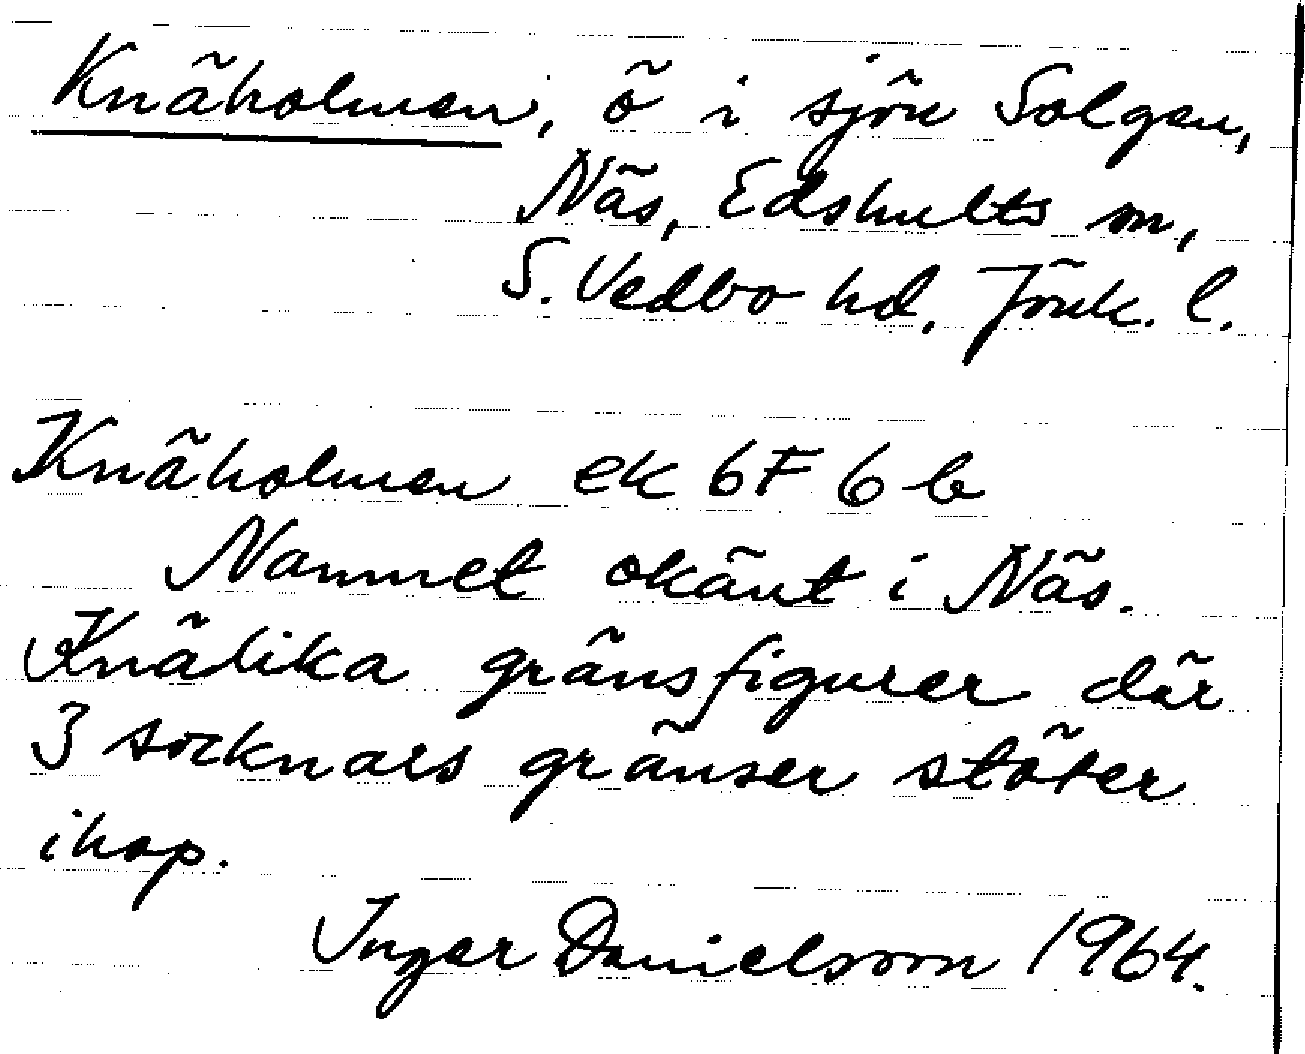 Knäholmen, ö i sjön Solgen,
Näs, Edshults sn,
S. Vedbo hd. Jönk. l.
Knäholmen ek 6F 6 b
Namnet okänt i Näs.
Knälika gränsfigurer där
3 socknars gränser stöter
ihop.
Ingar Danielsson 1964.